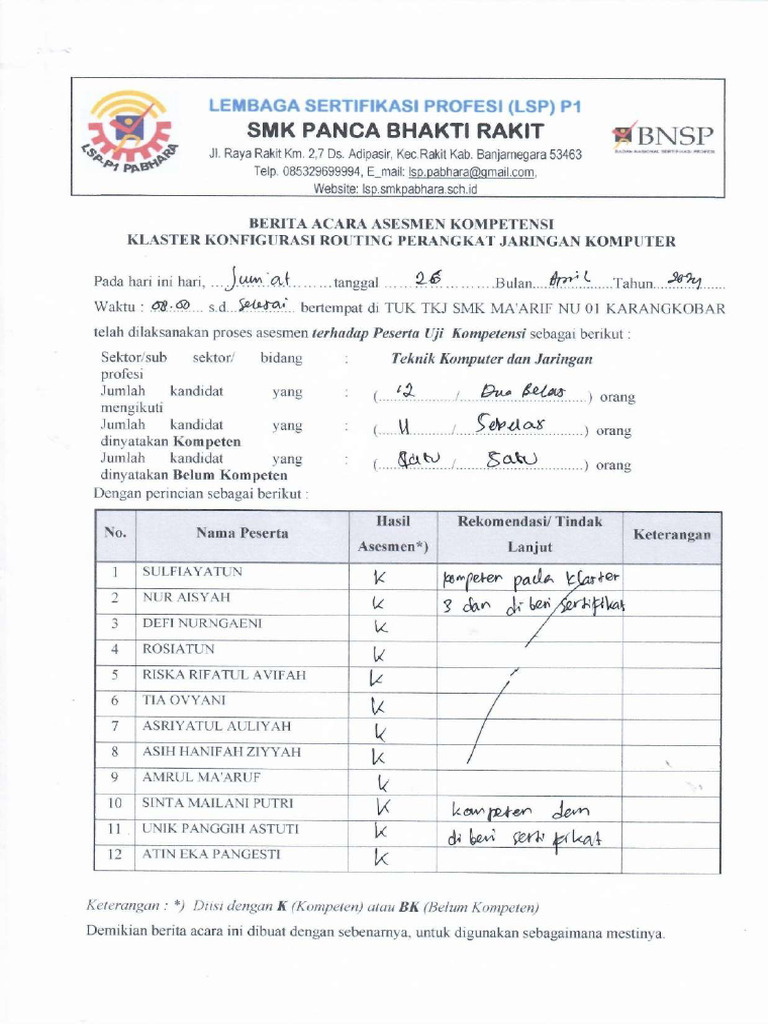 LEMBAGA SERTIFIKASI PROFESI (LSP) P1
SMK PANCA BHAKTI RAKIT
Jl. Raya Rakit Km. 2,7 Ds. Adipasir, Kec.Rakit Kab. Banjarnegara 53463
Telp. 085329699994, E_mail: lsp.pabhara@gmail.com,
Website: lsp.smkpabhara.sch.id
LSP-P1 PABHARA
BNSP
BADAN NASIONAL SERTIFIKASI PROFESI
BERITA ACARA ASESMEN KOMPETENSI
KLASTER KONFIGURASI ROUTING PERANGKAT JARINGAN KOMPUTER
Pada hari ini hari, Jum'at tanggal 26 Bulan April Tahun 2024
Waktu : 08.00 s.d selesai bertempat di TUK TKJ SMK MA'ARIF NU 01 KARANGKOBAR
telah dilaksanakan proses asesmen terhadap Peserta Uji Kompetensi sebagai berikut :
Sektor/sub sektor/ bidang : Teknik Komputer dan Jaringan
profesi
Jumlah kandidat yang : ( 12 / Dua Belas ) orang
mengikuti
Jumlah kandidat yang : ( 11 / Sebelas ) orang
dinyatakan Kompeten
Jumlah kandidat yang : ( Satu / Satu ) orang
dinyatakan Belum Kompeten
Dengan perincian sebagai berikut :
No. Nama Peserta Hasil Asesmen*) Rekomendasi/ Tindak Lanjut Keterangan
1 SULFIAYATUN K kompeten pada klaster
2 NUR AISYAH K 3 dan di beri sertifikat
3 DEFI NURNGAENI K
4 ROSIATUN K
5 RISKA RIFATUL AVIFAH K
6 TIA OVYANI K
7 ASRIYATUL AULIYAH K
8 ASIH HANIFAH ZIYYAH K
9 AMRUL MA'ARUF K
10 SINTA MAILANI PUTRI K kompeten dan
11 UNIK PANGGIH ASTUTI K di beri sertifikat
12 ATIN EKA PANGESTI K
Keterangan : *) Diisi dengan K (Kompeten) atau BK (Belum Kompeten)
Demikian berita acara ini dibuat dengan sebenarnya, untuk digunakan sebagaimana mestinya.